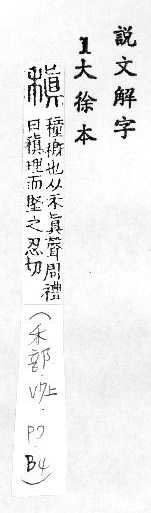 說文解字
1大徐本
稹 穜穊也从禾眞聲周禮
曰稹理而堅之忍切
(禾部．V7上．P7．B4)